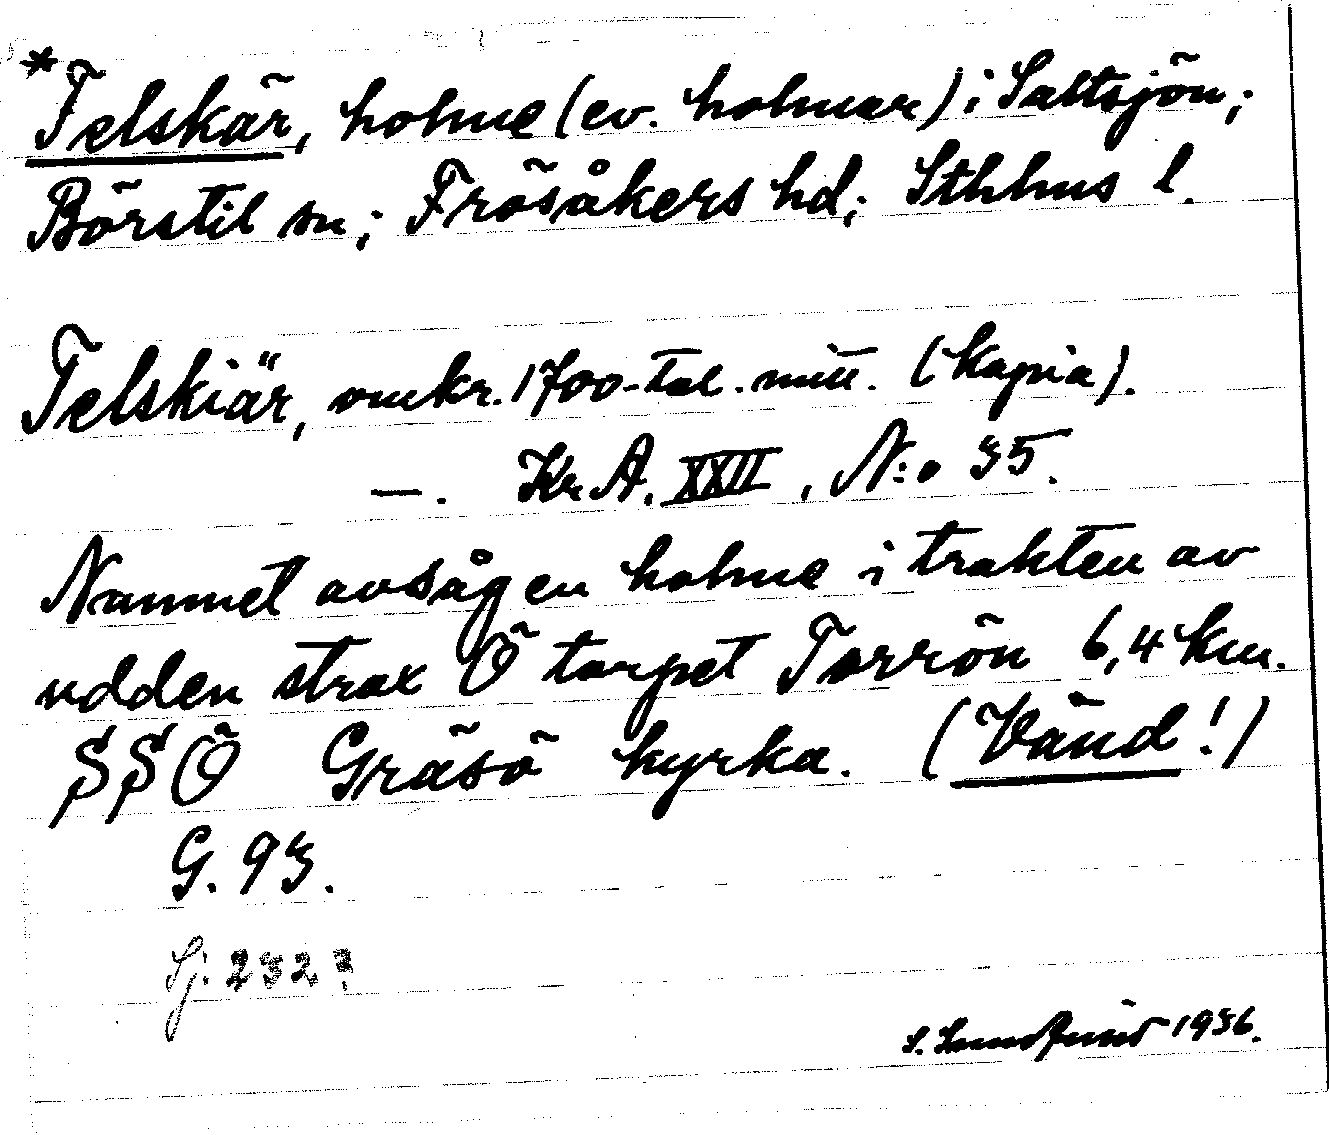 *Telskär, holme (ev. holmar) i Saltsjön;
Börstil sn; Frösåkers hd; Sthlms l.
Telskiär, omkr. 1700-tal. mitt. (Kopia).
—. Kr. A. XXII, N:o 35.
Namnet avsåg en holme i trakten av
udden strax Ö torpet Torrön 6,4 km.
SSÖ Gräsö kyrka. (Vänd!)
G. 93.
Sj. 232?
S. 1936.